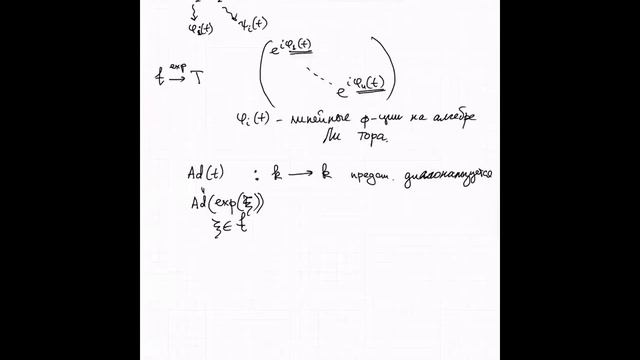 φᵢ(t) ψᵢ(t)
𝔱 exp→ T
e^{iφ₁(t)}
e^{iφₙ(t)}
φᵢ(t) - линейные ф-ции на алгебре
Ли тора.
Ad(t) : k ⟶ k предст. диагонализуется
Ad(exp(ξ))
ξ ∈ 𝔱